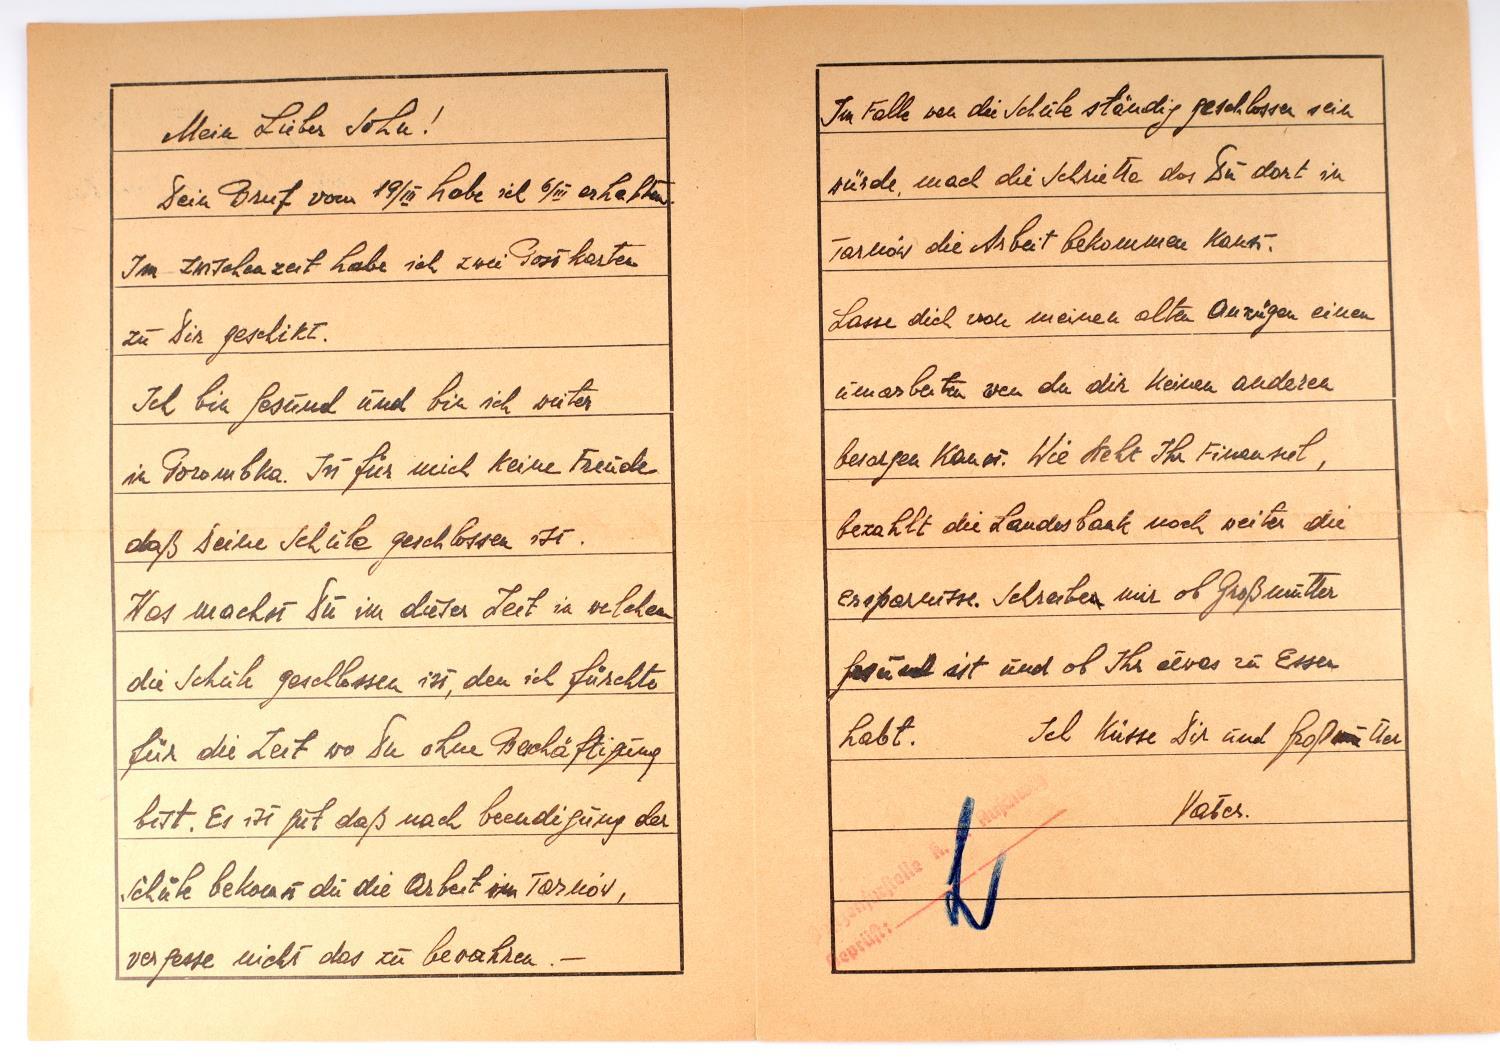 Mein Lieber Sohn!
Dein Brief vom 19/III habe ich 6/III erhalten.
Im zwischenzeit habe ich zwei Postkarten
zu Dir geschikt.
Ich bin gesund und bin ich weiter
in Porombka. Ist für mich keine Freude
daß Deine Schule geschlossen ist.
Was machst Du im dieser Zeit in welchen
die Schule geschlossen ist, den ich fürchte
für die Zeit wo Du ohne Beschäftigung
bist. Es ist gut daß nach beendigung der
Schule bekomst du die Arbeit im Tarnów,
vergesse nicht das zu bewahren. —
Im Falle wen die Schule ständig geschlossen sein
würde, mach die Schrietta das Du dort in
Tarnów die Arbeit bekommen kanst.
Lasse dich von meinen alten Anzügen einen
umarbeiten wen du dir keinen anderen
besorgen kanst. Wie steht Ihr Finansiel,
bezahlt die Landesbank noch weiter die
ersparnisse. Schreiben mir ob Großmutter
gesund ist und ob Ihr etwas zu Essen
habt. Ich Küsse Dir und Großmutter
Vater.
Geprüft: